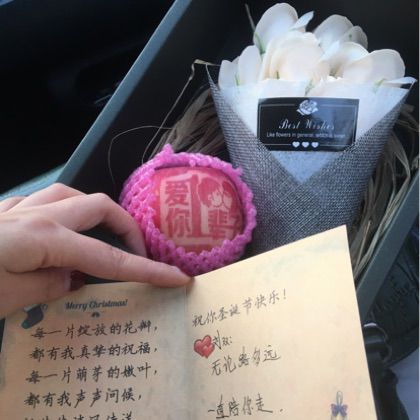 Best Wishes
Like flowers in general, which is sweet
爱你
一辈
Merry Christmas!
每一片绽放的花瓣,
都有我真挚的祝福,
每一片萌芽的嫩叶,
都有我声声问候,
祝你圣诞节快乐!
无论路多远
一直陪你走.